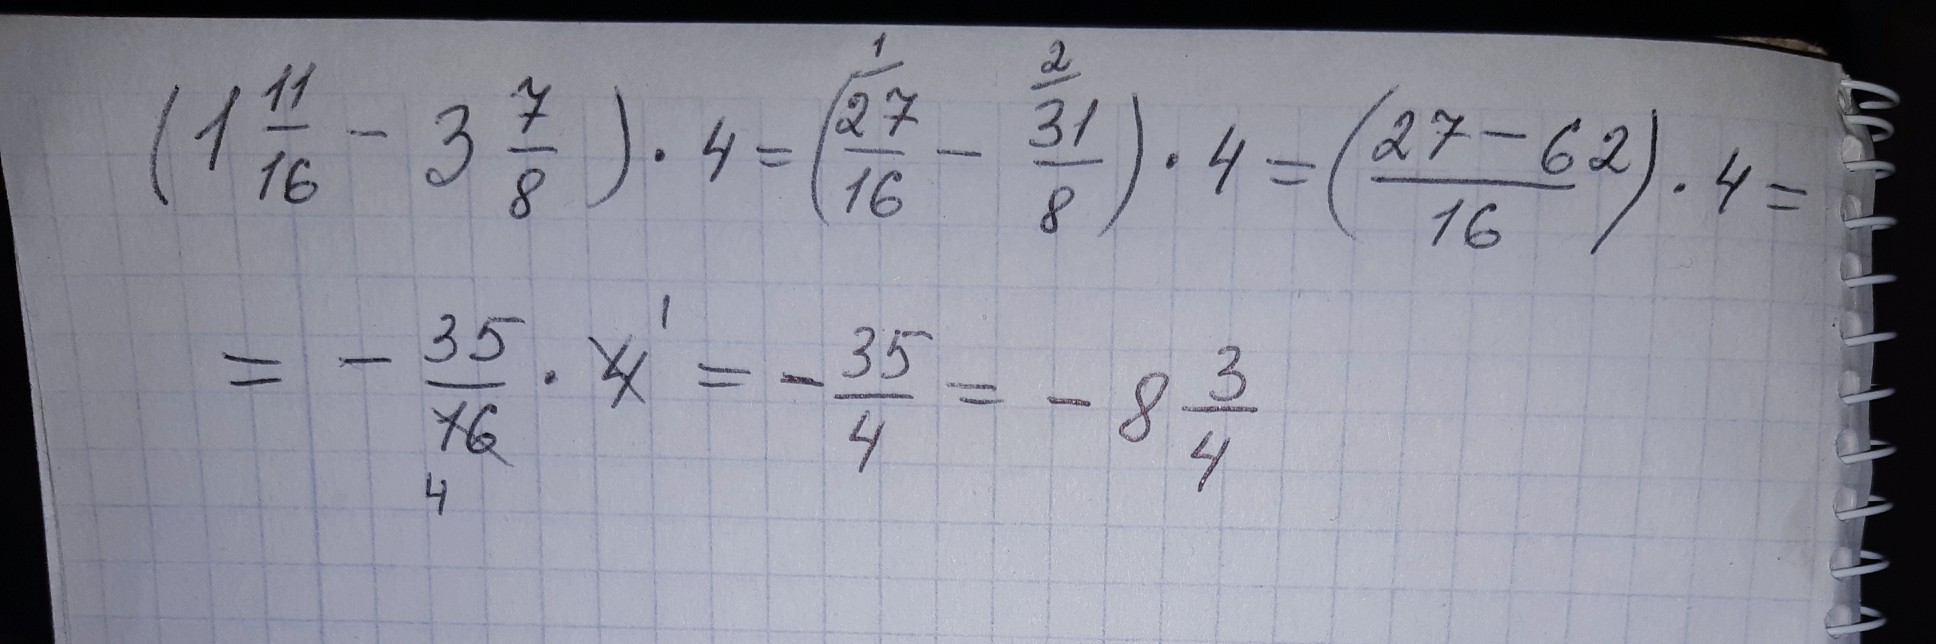 (1 11/16 - 3 7/8) · 4 = (27/16 ¹ - 31/8 ²) · 4 = ((27 - 62)/16) · 4 =
= - 35/16 4 · 4 ¹ = - 35/4 = - 8 3/4